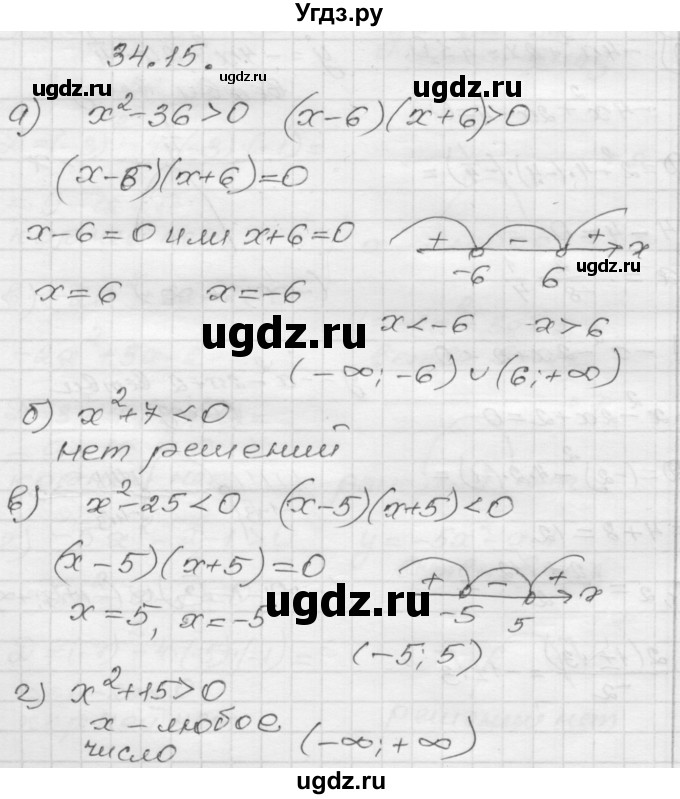 Угдз.ру
34.15.
ugdz.ru ugdz.ru ugdz.ru
а) x²-36>0 (x-6)(x+6)>0
(x-6)(x+6)=0
x-6=0 или x+6=0
+ - + x
-6 6
ugdz.ru
x=6 x=-6
ugdz.ru
x<-6 x>6
(-∞; -6) ∪ (6; +∞)
б) x²+7<0
нет решений
в) x²-25<0 (x-5)(x+5)<0
(x-5)(x+5)=0
+ - + x
-5 5
ugdz.ru
x=5, x=-5
(-5; 5)
г) x²+15>0
x - любое
число
(-∞; +∞)
ugdz.ru ugdz.ru
ugdz.ru